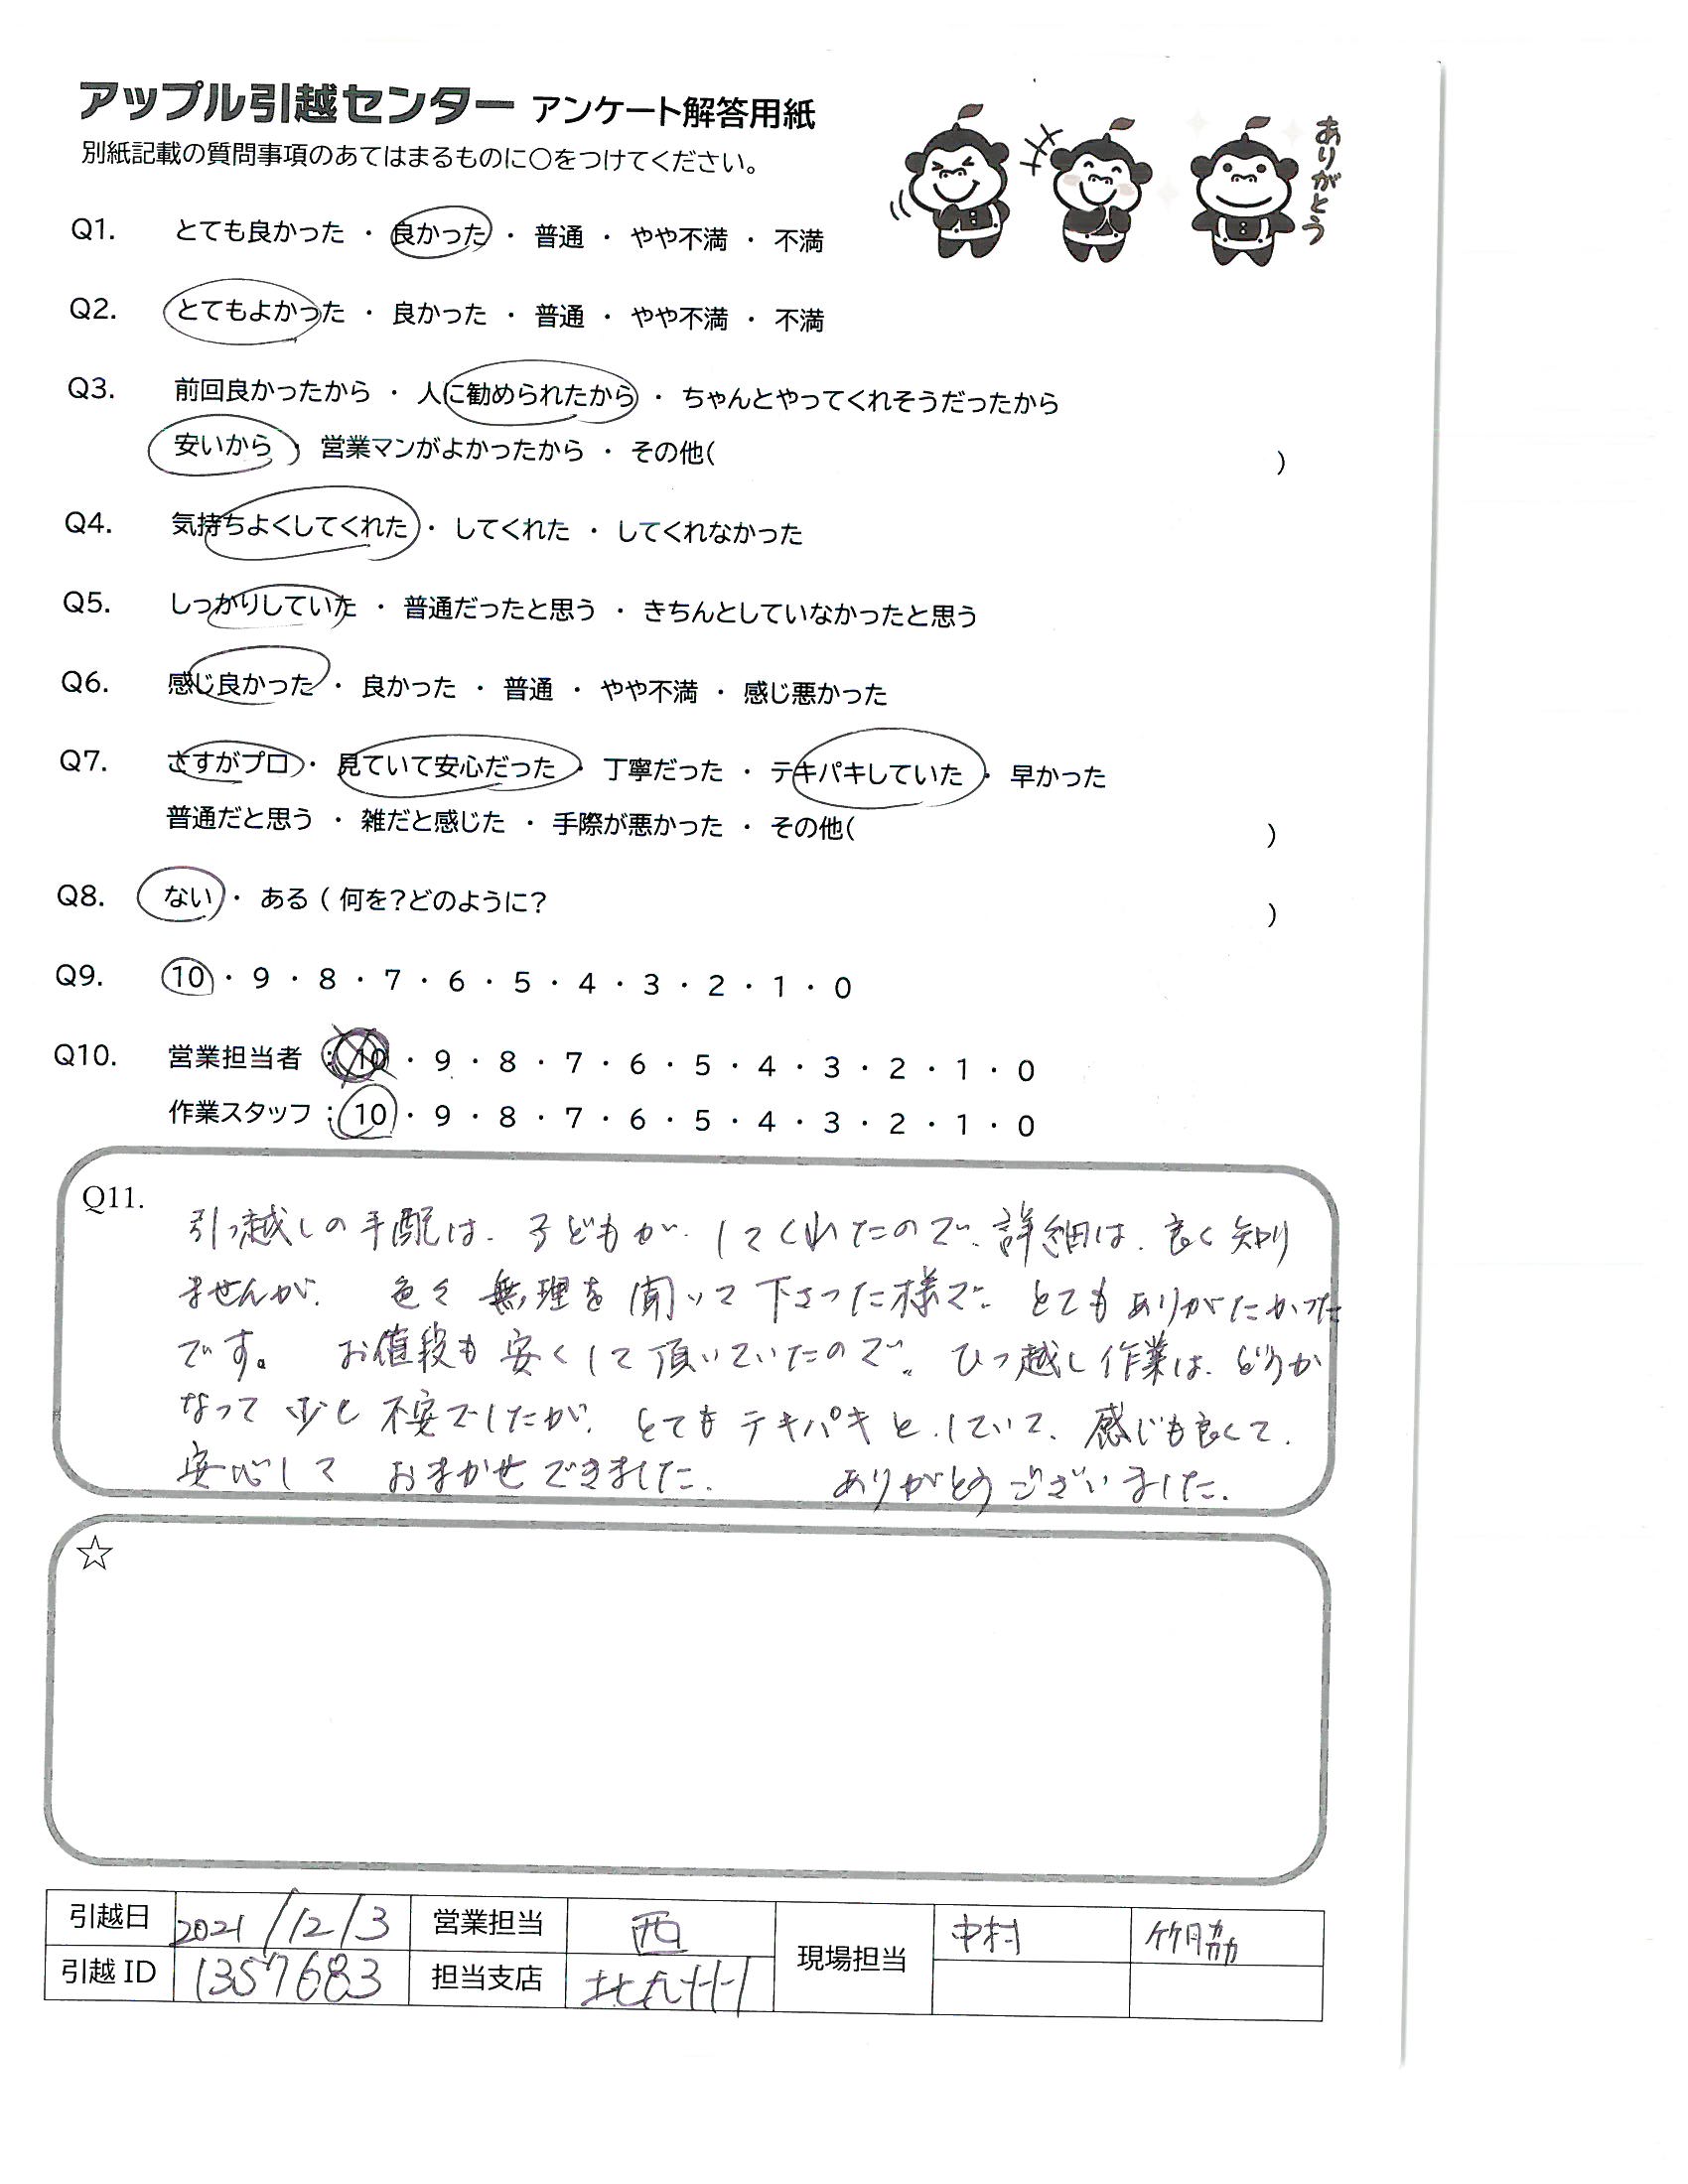 アップル引越センター アンケート解答用紙
別紙記載の質問事項のあてはまるものに○をつけてください。
ありがとう
Q1. とても良かった ・ 良かった ・ 普通 ・ やや不満 ・ 不満
Q2. とてもよかった ・ 良かった ・ 普通 ・ やや不満 ・ 不満
Q3. 前回良かったから ・ 人に勧められたから ・ ちゃんとやってくれそうだったから
安いから ・ 営業マンがよかったから ・ その他( )
Q4. 気持ちよくしてくれた ・ してくれた ・ してくれなかった
Q5. しっかりしていた ・ 普通だったと思う ・ きちんとしていなかったと思う
Q6. 感じ良かった ・ 良かった ・ 普通 ・ やや不満 ・ 感じ悪かった
Q7. さすがプロ ・ 見ていて安心だった ・ 丁寧だった ・ テキパキしていた ・ 早かった
普通だと思う ・ 雑だと感じた ・ 手際が悪かった ・ その他( )
Q8. ない ・ ある ( 何を?どのように? )
Q9. 10 ・ 9 ・ 8 ・ 7 ・ 6 ・ 5 ・ 4 ・ 3 ・ 2 ・ 1 ・ 0
Q10. 営業担当者 : 10 ・ 9 ・ 8 ・ 7 ・ 6 ・ 5 ・ 4 ・ 3 ・ 2 ・ 1 ・ 0
作業スタッフ : 10 ・ 9 ・ 8 ・ 7 ・ 6 ・ 5 ・ 4 ・ 3 ・ 2 ・ 1 ・ 0
Q11.
引っ越しの手配は、子どもが、してくれたので、詳細は、良く知り
ませんが、色々無理を聞いて下さった様で、とてもありがたかった
です。お値段も安くして頂いていたので、ひっ越し作業は、どうか
なって少し不安でしたが、とてもテキパキと、していて、感じも良くて、
安心しておまかせできました。 ありがとうございました。
☆
引越日 2021/12/3 営業担当 西 現場担当 中村 竹脇
引越 ID 1357683 担当支店 北九州